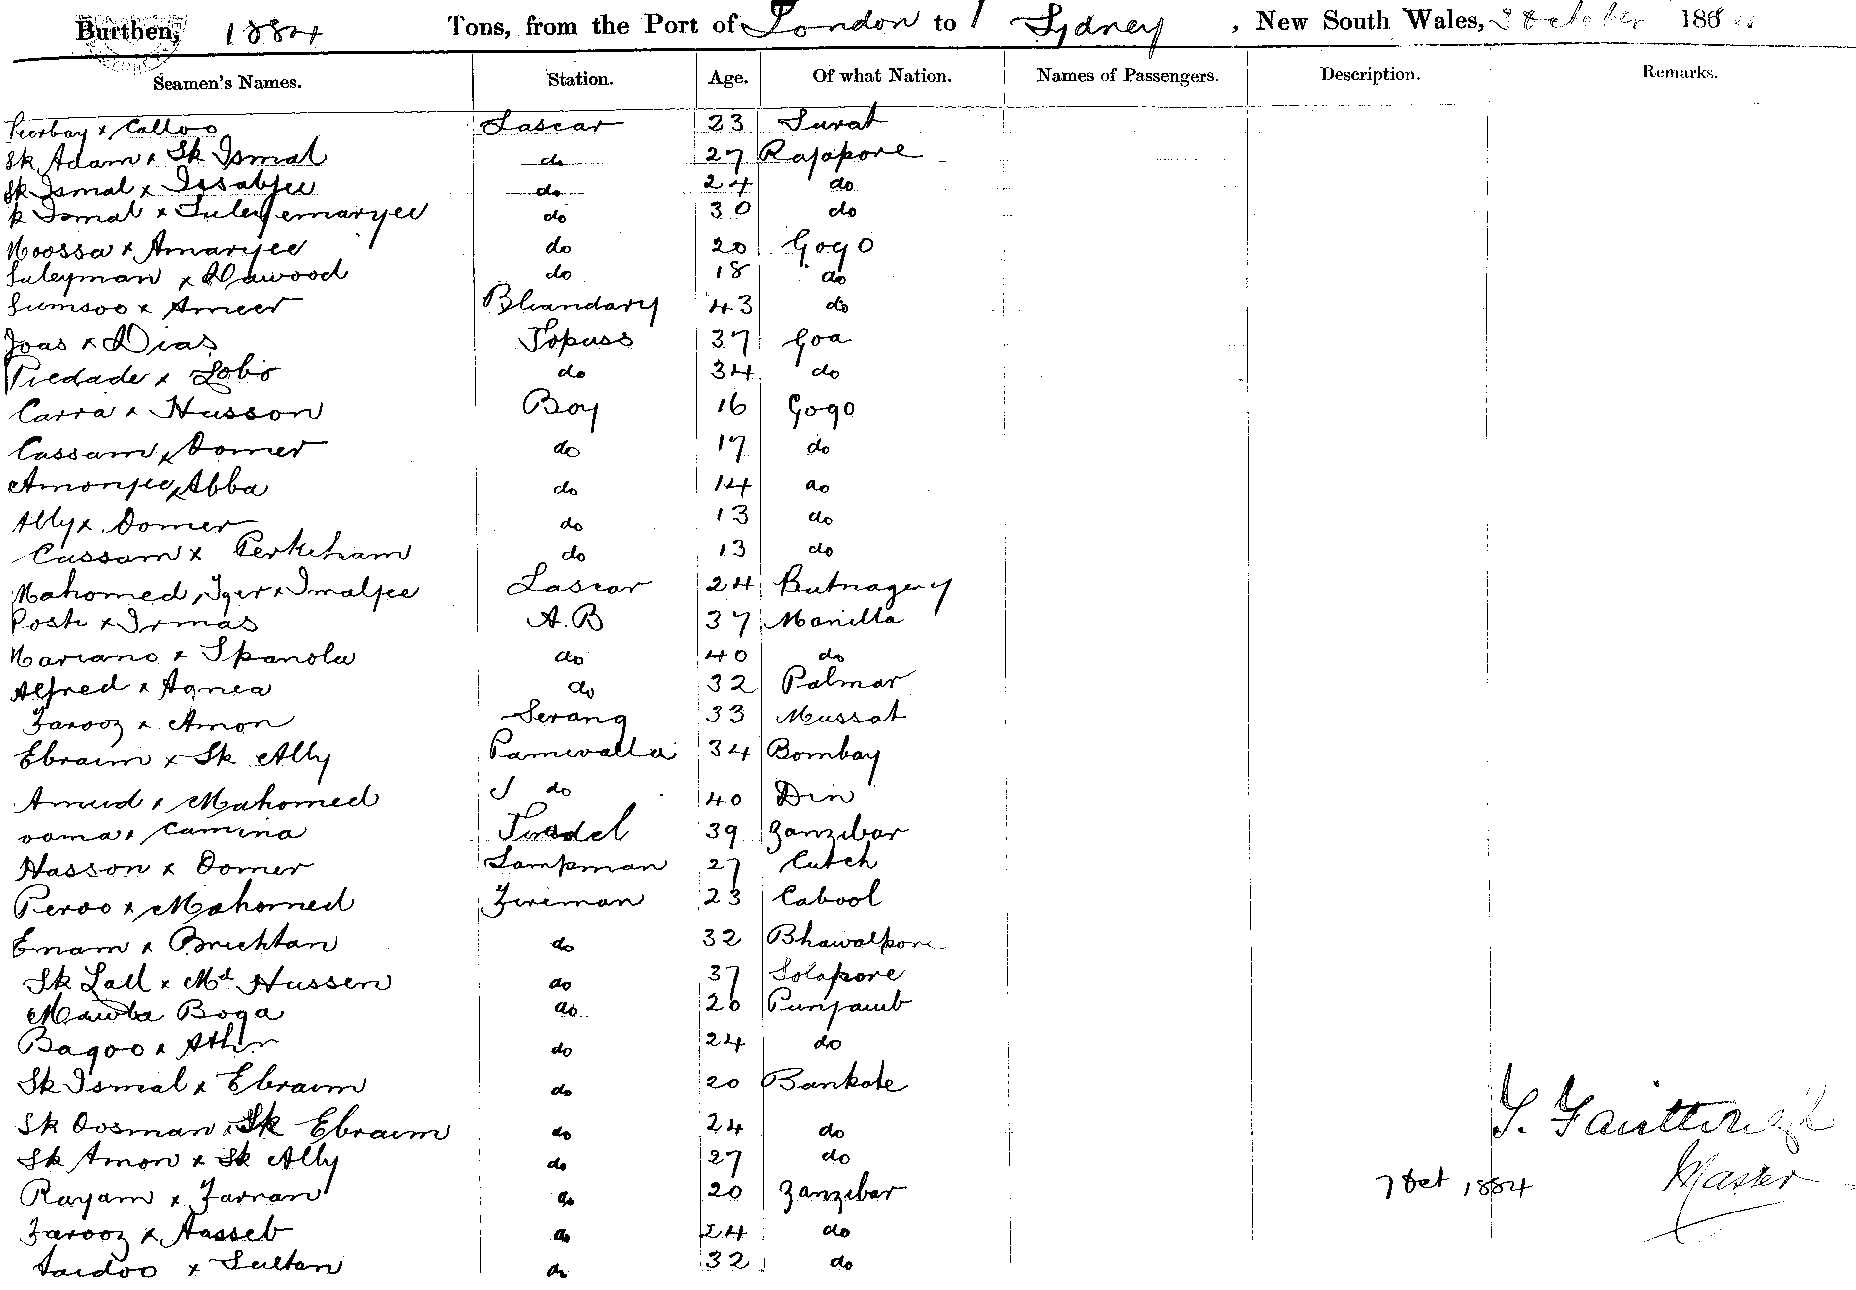 Burthen, 1884 Tons, from the Port of London to Sydney, New South Wales, October 188
Seamen's Names. Station. Age. Of what Nation. Names of Passengers. Description. Remarks.
x Calloo Lascar 23 Surat
Sk Adam x Sk Ismal do 27 Rajapore
Sk Ismal x Issabjee do 24 do
k Ismal x Suleyemanjee do 30 do
Moossa x Amarjee do 20 Gogo
Suleyman x Dawood do 18 do
Sumsoo x Ameer Bhandary 43 do
Joas x Dias Topass 37 Goa
Piedade x Lobo do 34 do
Carra x Husson Boy 16 Gogo
Cassam x Oomer do 17 do
Amonjee x Abba do 14 do
Ally x Oomer do 13 do
Cassam x do 13 do
Mahomed x Imaljee Lascar 24
x A.B 37 Manilla
Mariano x Spanola do 40 do
Alfred x Agnea do 32 Palmar
Farooz x Amon Serang 33 Mussat
Ebraim x Sk Ally Paniwalla 34 Bombay
Amud x Mahomed do 40 Din
ooma x Camina 39 Zanzibar
Hasson x Oomer Lampman 27 Cutch
Peroo x Mahomed Fireman 23 Cabool
Emam x do 32 Bhawalpore
Sk Lall x Md Hussen do 37 Solapore
Boga do 20 Punjaub
Bagoo x do 24 do
Sk Ismal x Ebraim do 20 Bankote
Sk Oosman x Sk Ebraim do 24 do
Sk Amon x Sk Ally do 27 do
Rayam x Farran do 20 Zanzibar 7 Oct 1884 Master
Farooz x Nasseb do 24 do
x Sultan do 32 do